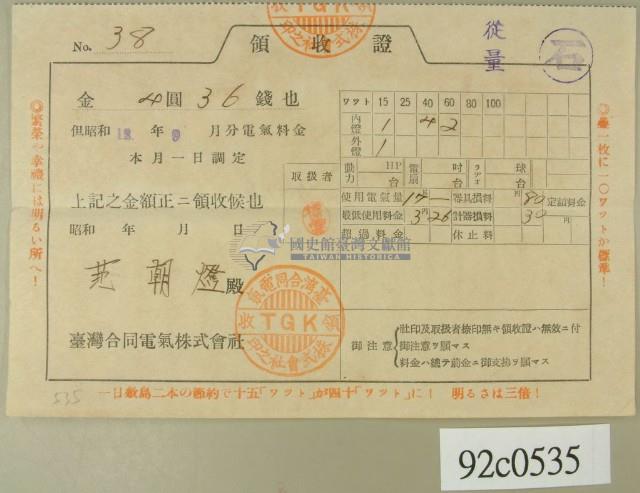 No. 38
領收證
從量
石
金 4圓36錢也
但昭和12年9月分電氣料金
本月一日調定
上記之金額正ニ領收候也
昭和 年 月 日
范朝燈殿
臺灣合同電氣株式會社
取扱者
ワット 15 25 40 60 80 100
內燈 1 4 2
外燈 1
動力 HP 台 電扇 吋 台 ラヂオ 球 台
使用電氣量 器具損料 80 定額料金
最低使用料金 3.26 計器損料 30
超過料金 休止料
御注意
社印及取扱者捺印無キ領收證ハ無效ニ付
御注意ヲ願マス
料金ハ總テ前金ニ御支拂ヲ願マス
臺灣合同電氣株式會社之印
TGK
領收
繁榮や幸福には明るい所へ!
疊一枚に一〇ワットが標準!
一日敷島二本の節約で十五「ワット」が四十「ワット」に! 明るさは三倍!
國史館臺灣文獻館
TAIWAN HISTORICA
535
92c0535